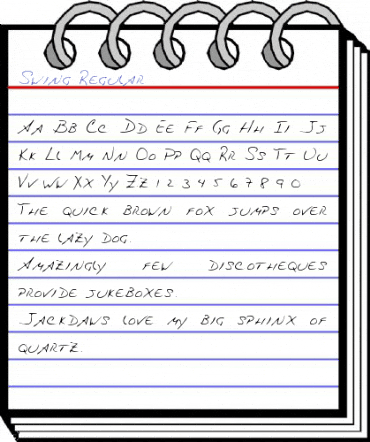 Swing Regular
Aa Bb Cc Dd Ee Ff Gg Hh Ii Jj
Kk Ll Mm Nn Oo Pp Qq Rr Ss Tt Uu
Vv Ww Xx Yy Zz 1 2 3 4 5 6 7 8 9 0
The quick brown fox jumps over
the lazy dog.
Amazingly few discotheques
provide jukeboxes.
Jackdaws love my big sphinx of
quartz.